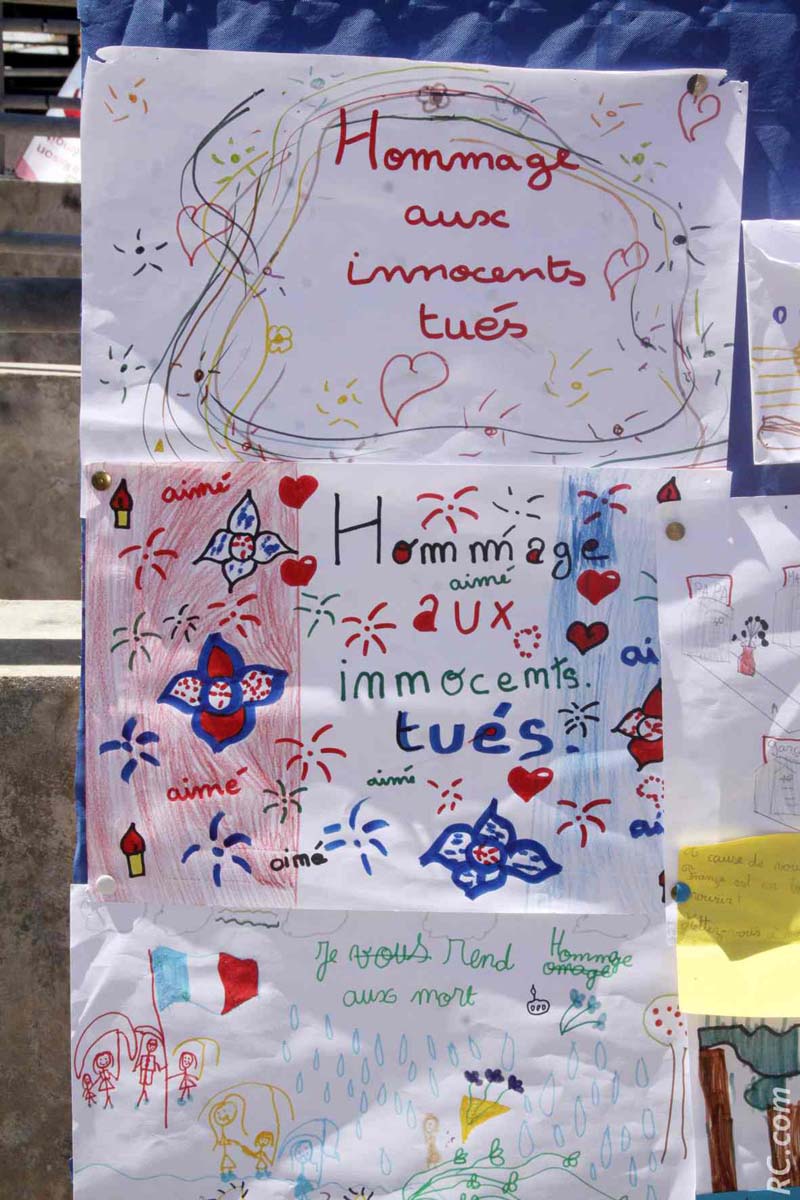 Hommage
aux
innocents
tués
aimé
Hommage
aimé
aux
innocents.
tués.
aimé
aimé
aimé
Je vous Rend Hommage
omage
aux mort
PAPA
cause de vous
RC.com